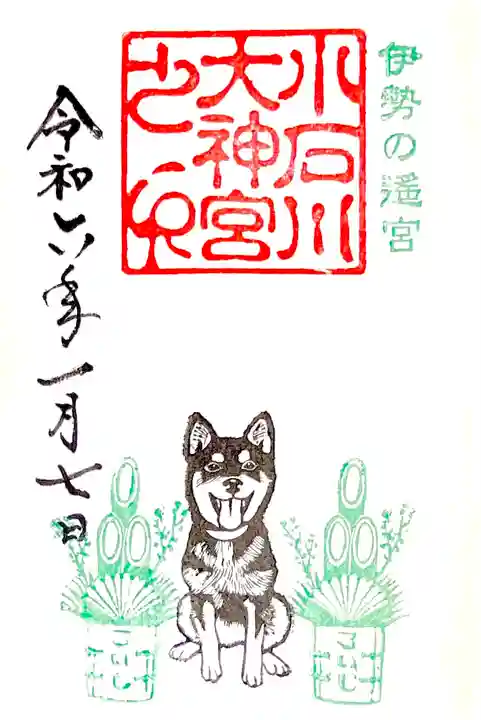 伊勢の遥宮
小石川
大神宮
之印
令和六年一月七日